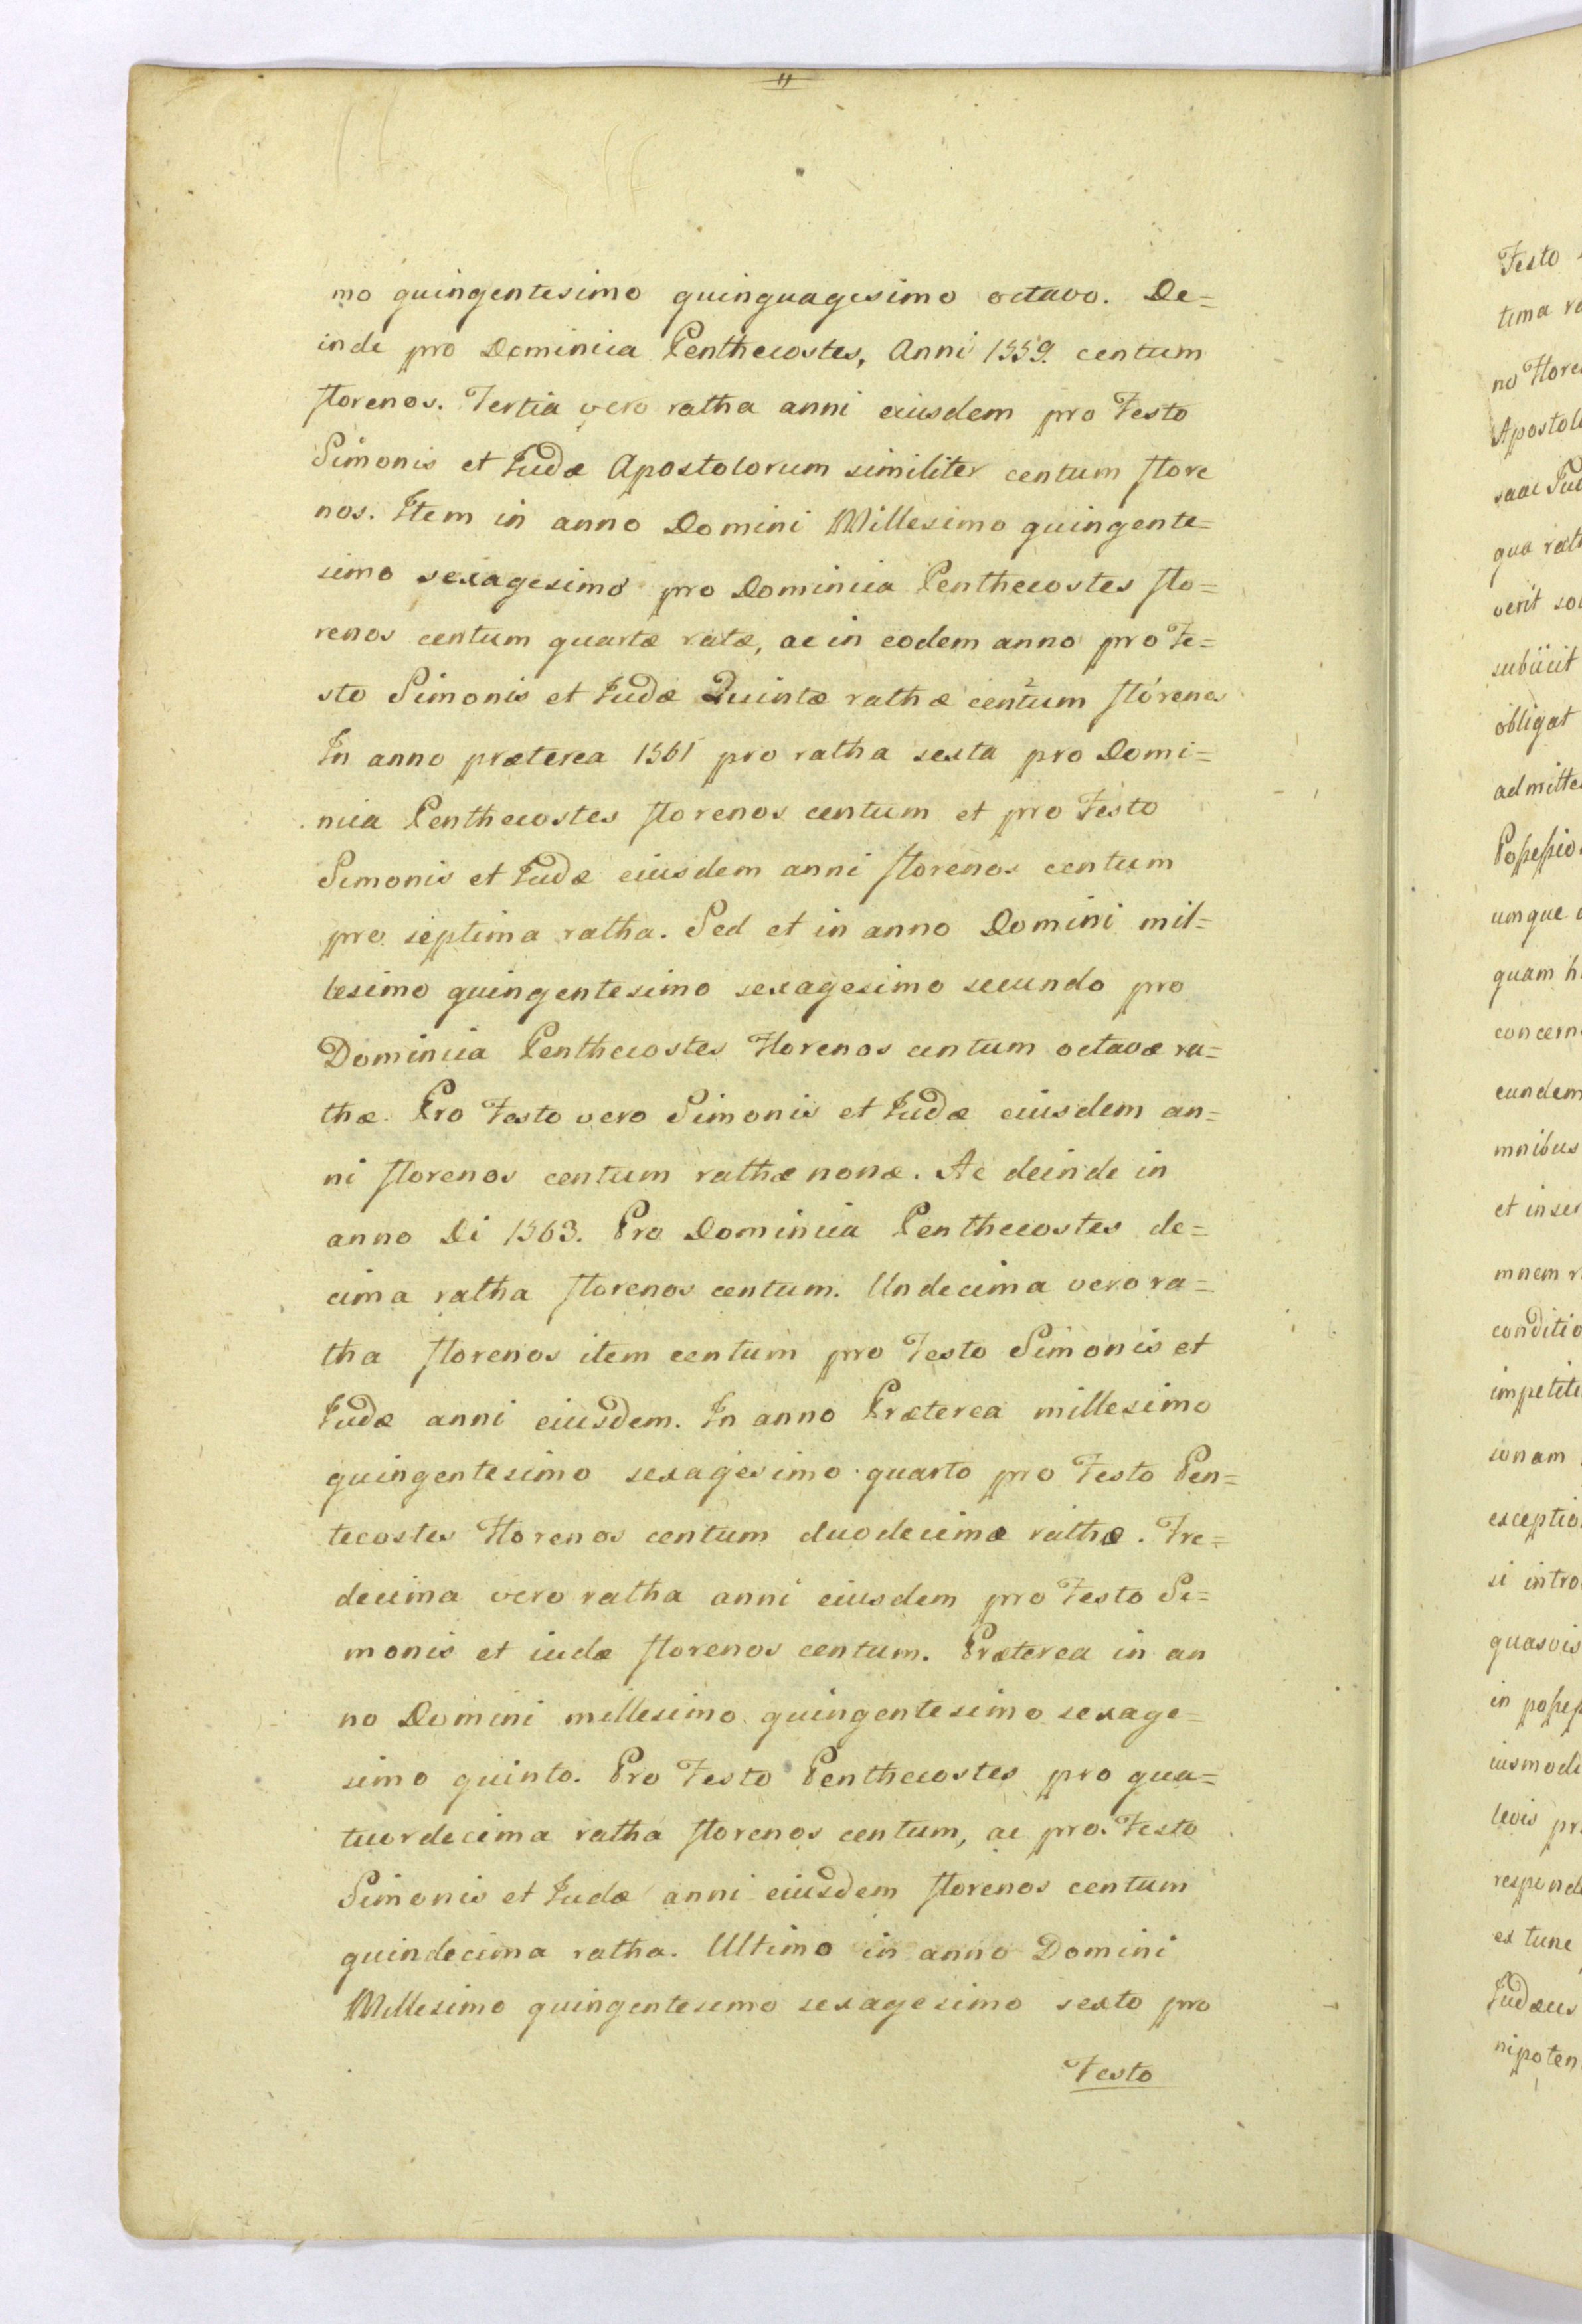 mo quingentesimo quinquagesimo octavo. De=
inde pro Dominica Penthecostes, Anni 1559. centum
florenos. Tertia vero ratha anni eiusdem pro Festo
Simonis et Iudæ Apostolorum similiter centum flore
nos. Item in anno Domini Millesimo quingente=
simo sexagesimo pro Dominica Penthecostes flo=
renos centum quartæ ratæ, ac in eodem anno pro Fe=
sto Simonis et Iudæ Quintæ rathæ centum florenos
In anno præterea 1561 pro ratha sexta pro Domi=
nica Penthecostes florenos centum et pro Festo
Simonis et Iudæ eiusdem anni florenos centum
pro septima ratha. Sed et in anno Domini mil=
lesimo quingentesimo sexagesimo secundo pro
Dominica Penthecostes Florenos centum octavæ ra=
thæ. Pro Festo vero Simonis et Iudæ eiusdem an=
ni florenos centum rathæ nonæ. Ac deinde in
anno Di 1563. Pro Dominica Penthecostes de=
cima ratha florenos centum. Undecima vero ra=
tha florenos item centum pro Festo Simonis et
Iudæ anni eiusdem. In anno Præterea millesimo
quingentesimo sexagesimo quarto pro Festo Pen=
tecostes Florenos centum duodecimæ rathæ. Tre=
decima vero ratha anni eiusdem pro Festo Si=
monis et iudæ florenos centum. Præterea in an
no Domini millesimo quingentesimo sexage=
simo quinto. Pro Festo Penthecostes pro qua=
tuordecima ratha florenos centum, ac pro Festo
Simonis et Iudæ anni eiusdem florenos centum
quindecima ratha. Ultimo in anno Domini
Millesimo quingentesimo sexagesimo sexto pro
Festo
Festo
tima
no
quam
eundem
mnibus
mnem
in
ex tunc
Iudæus